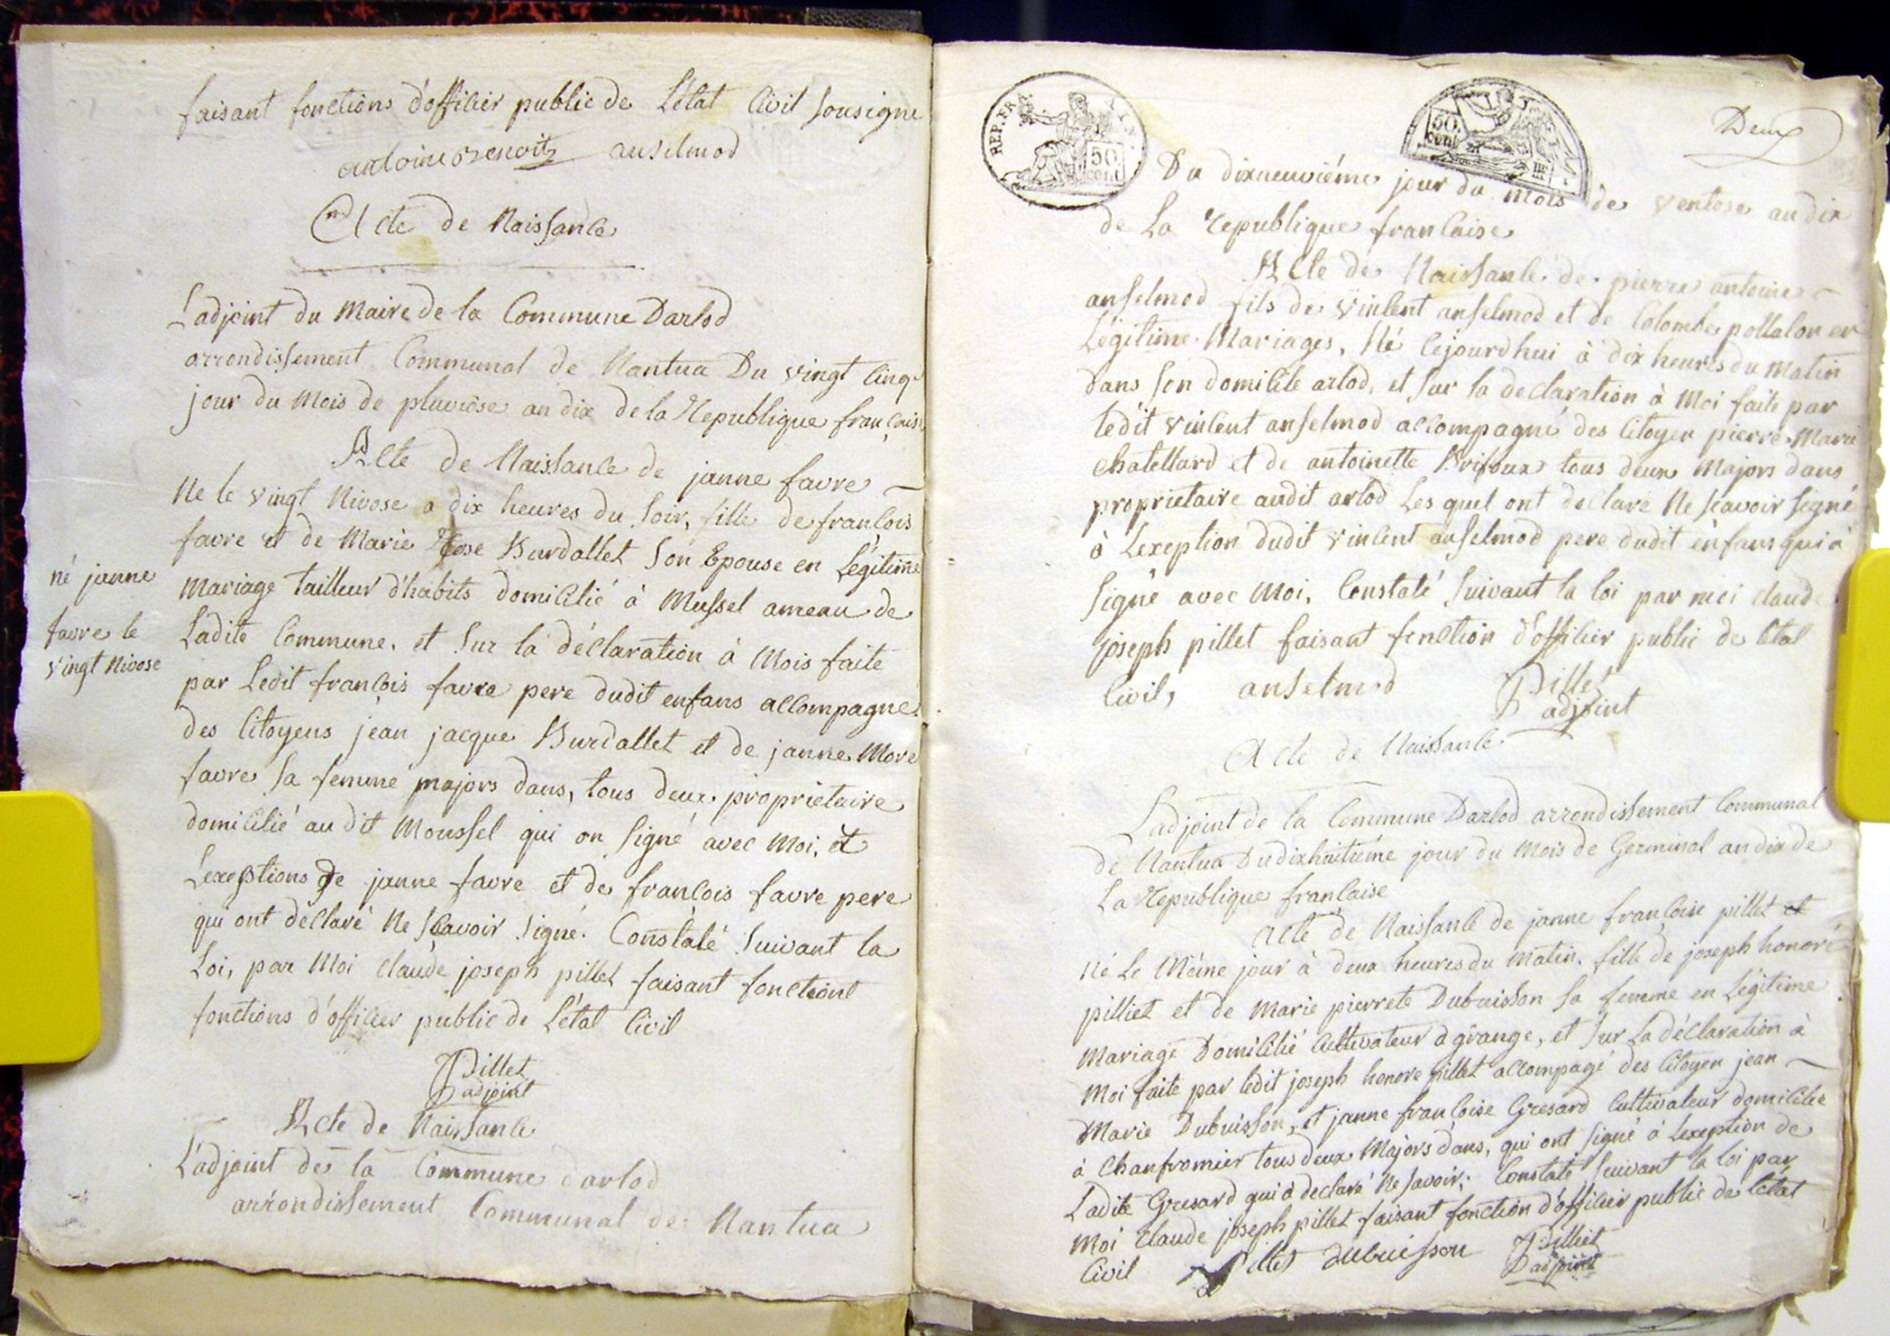 faisant fonctions d'officier public de L'état Civil Sousigne
antoine benoit anselmod
Acte de Naissance
Ladjoint du Maire de la Commune Darlod
arrondissement Communal de Nantua Du vingt Cinq
jour du Mois de pluviose an dix de la Republique française
Acte de Naissance de janne favre
Ne le vingt Nivose a dix heures du Soir, fille de francois
favre et de Marie Rose Burdallet Son Epouse en Légitime
Mariage tailleur d'habits domicilié à Mussel ameau de
Ladite Commune. et Sur la déclaration à Mois faite
par Ledit francois favre pere dudit enfans accompagné
des Citoyens jean jacque Burdallet et de janne More
favre Sa femme majors dans, tous deux proprietaire
domicilié au dit Moussel qui on Signé avec Moi, et
Lexeptions de janne favre et de francois favre pere
qui ont déclaré Ne Scavoir Signé. Constaté Suivant la
Loi, par Moi Claude joseph pillet faisant fonctions
fonctions d'officier public de L'état Civil
Pillet
adjoint
né janne
favre le
vingt Nivose
Acte de Naissance
L'adjoint de la Commune darlod
arrondissement Communal de Nantua
REP. FRA.
50
cent.
50
cent.
Deux
Du dixneuviéme jour du Mois de ventose an dix
de La republique francaise
Acte de Naissance de pierre antoine
anselmod fils de vincent anselmod et de Colombe pollalon en
Légitime Mariages, Né Cejourdhui à dix heures du Matin
dans Son domicile arlod, et Sur la declaration à Moi faite par
ledit vincent anselmod accompagné des Citoyen pierre Marie
Chatellard et de antoinette Brifoux tous deux Majors dans
proprietaire audit arlod Les quel ont declaré Ne Scavoir Signé
à Lexeption dudit vincent anselmod pere dudit enfans qui à
Signé avec Moi, Constaté Suivant la loi par moi claude
joseph pillet faisant fonction d'officier public de létat
Civil, anselmod Pillet
adjoint
Acte de Naissance
Ladjoint de la Commune Darlod arrondissement Communal
de Nantua Du dixhuitiéme jour du Mois de Germinal an dix de
La Republique francaise
Acte de Naissance de janne françoise pillet et
Né Le Même jour à deux heures du Matin, fille de joseph honoré
pilliet et de Marie pierrete Dubuisson Sa femme en Légitime
Mariage Domicilié Cultivateur à grange, et Sur La déclaration à
Moi faite par ledit joseph honore pillet accompagé des Citoyen jean
Marie Dubuisson, et janne francoise Gresard Cultivateur domicilié
à Chanfromier tous deux Majors dans, qui ont Signé à Lexeption de
Ladite Gresard qui à declaré Ne Savoir; Constaté Suivant la loi par
Moi Claude joseph pillet faisant fonction d'officier public de l'état
Civil pillet dubuisson Pilliet
adjoint